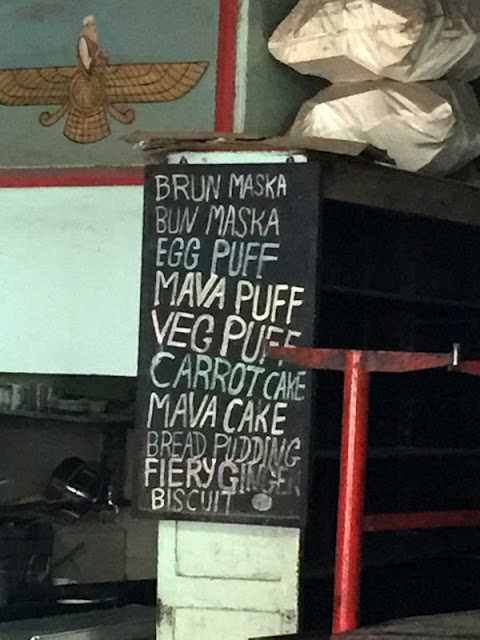 BRUN MASKA
BUN MASKA
EGG PUFF
MAVA PUFF
VEG PUFF
CARROT CAKE
MAVA CAKE
BREAD PUDDING
FIERY GINGER
BISCUIT